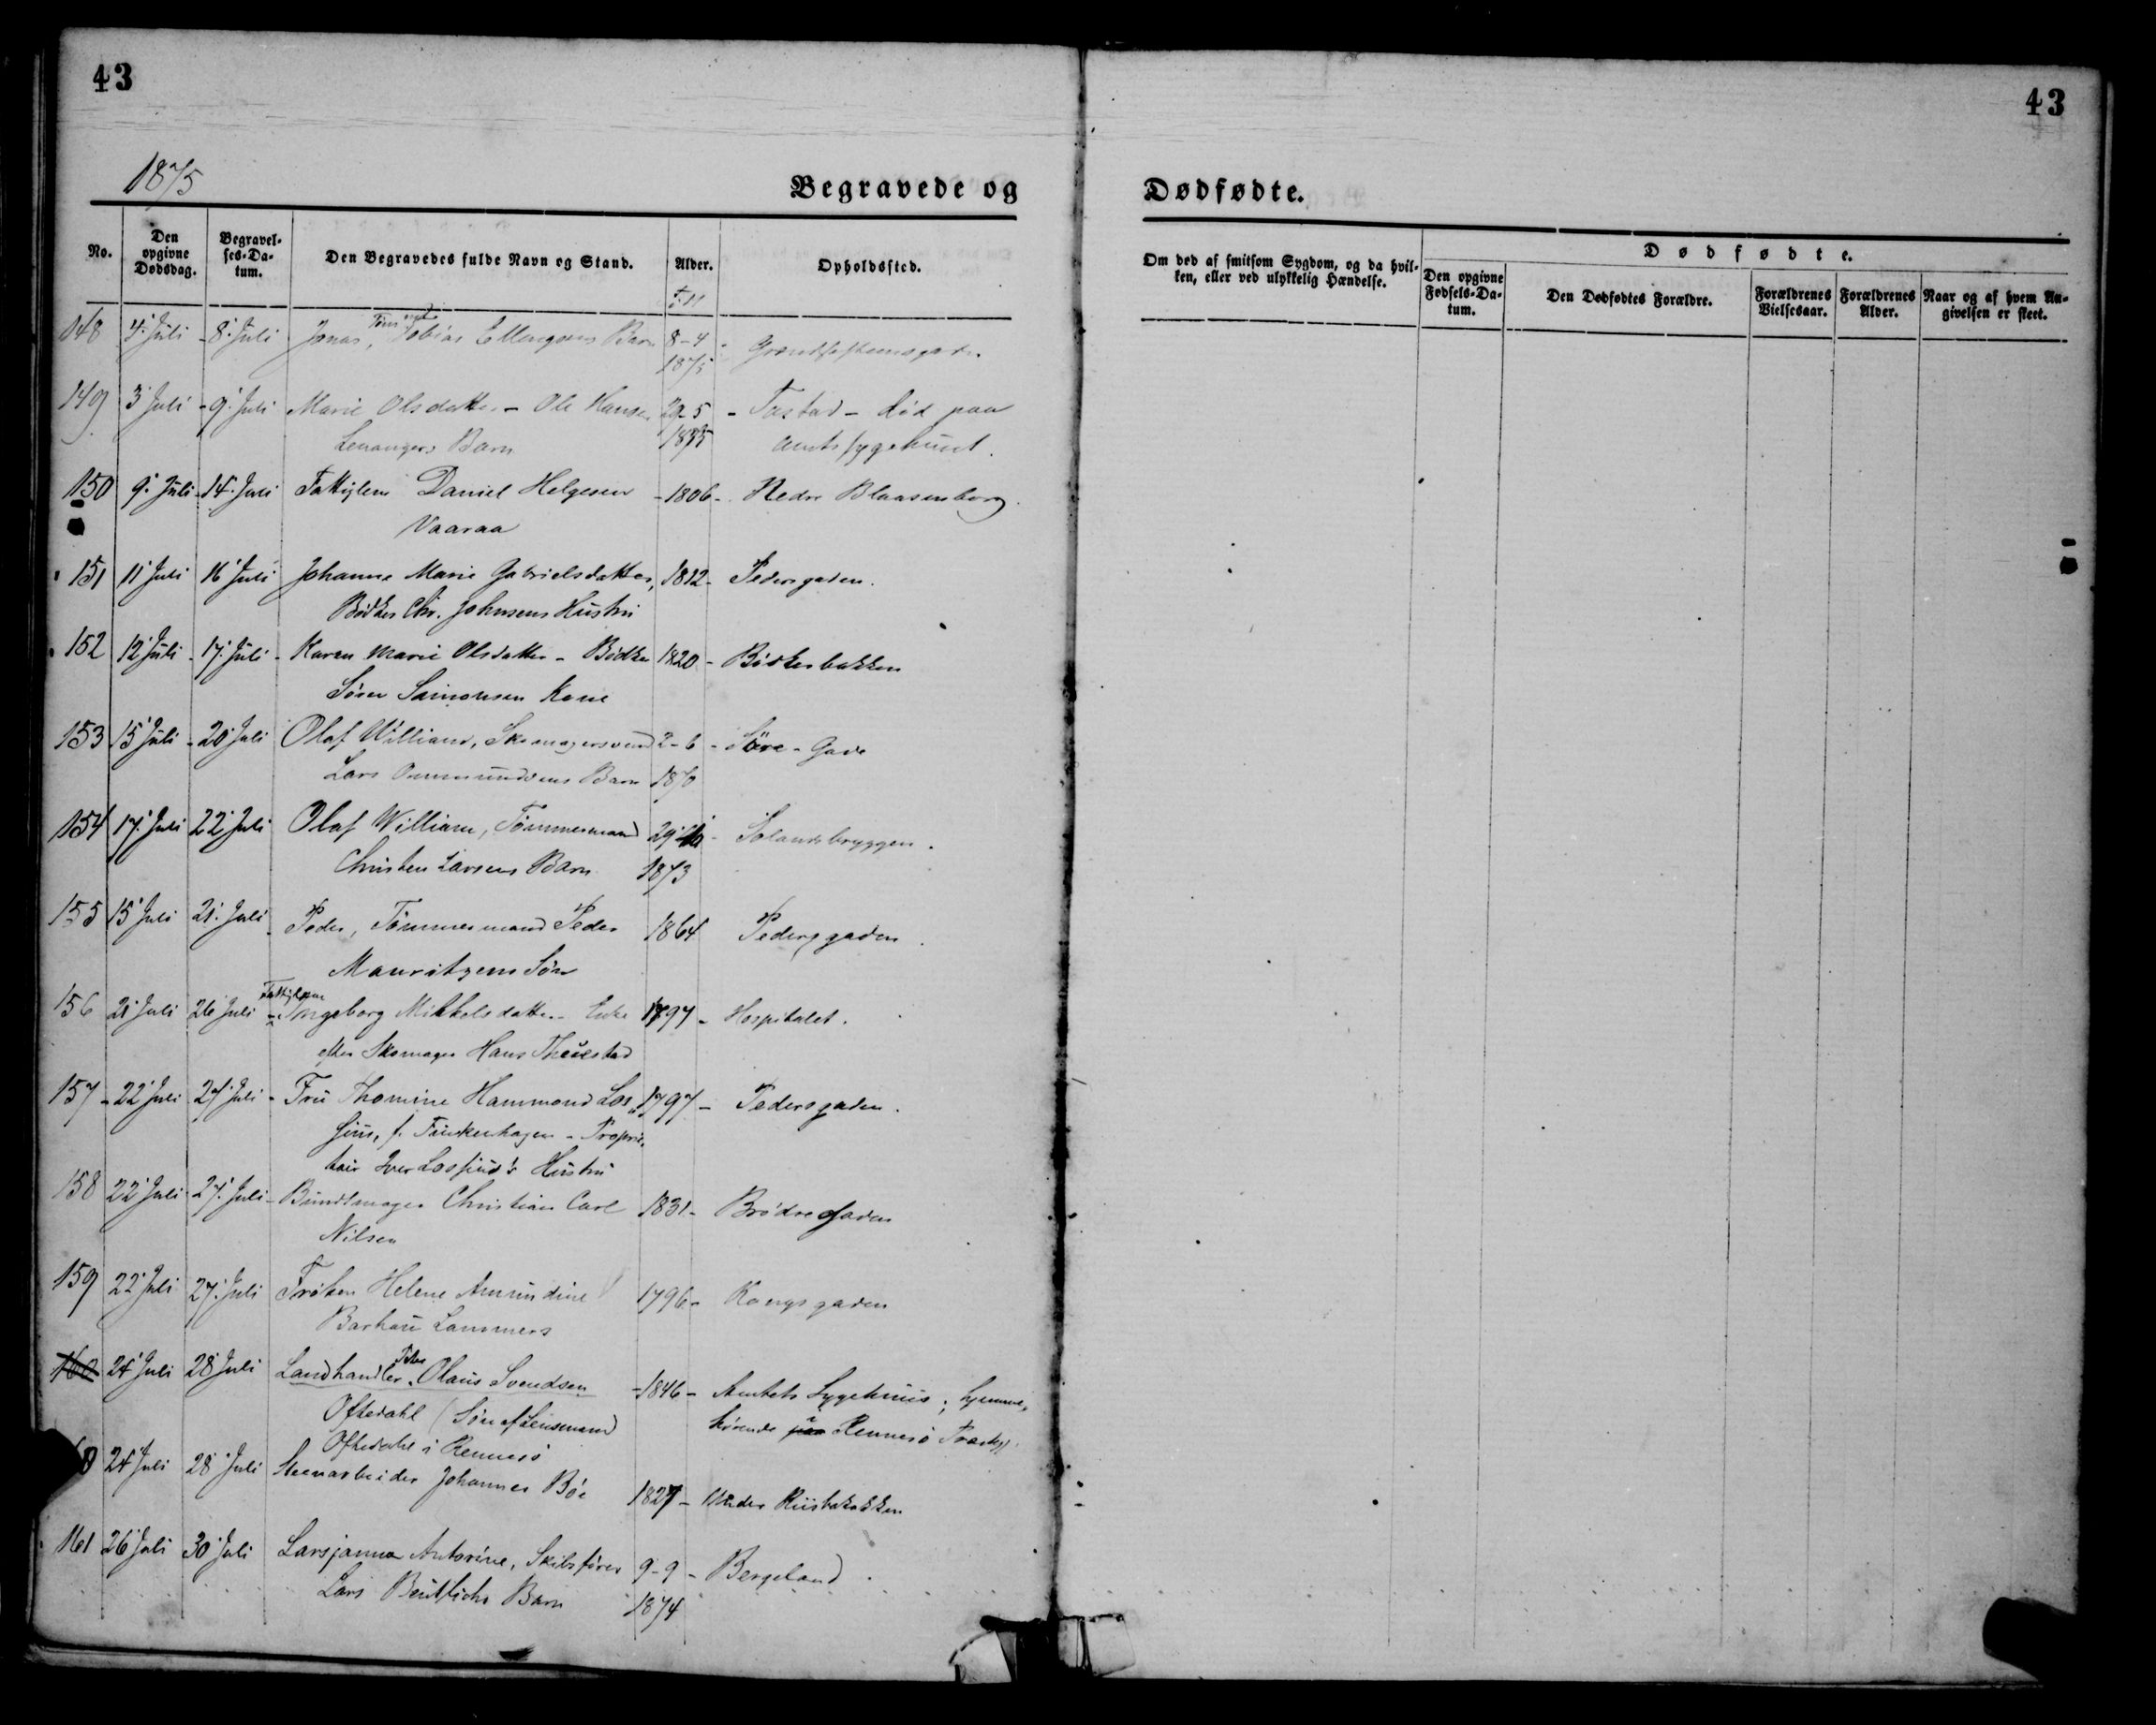 43
43
1875
Begravede og
Dødfødte.
No.
Den opgivne Dødsdag.
Begravel-ses-Da-tum.
Den Begravedes fulde Navn og Stand.
Alder.
Opholdssted.
Om død af smitsom Sygdom, og da hvil-
ken, eller ved ulykkelig Hændelse.
Dødfødte.
Den opgivne Fødsels-Da-tum.
Den Dødfødtes Forældre.
Forældrenes Vielsesaar.
Forældrenes Alder.
Naar og af hvem An-givelsen er skeet.
148 4' Juli - 8' Juli Jonas, Tobias Ellingsens Barn 8-4
1875
149 3' Juli - 9' Juli Marie Olsdatter - Ole Hansen 29-5 - Tastad - død paa
Lenangers Barn 1835 Amtssygehuset.
150 9' Juli - 14' Juli Fattiglem Daniel Helgesen - 1806 - Nedre Blaasenborg
Vaaraa
151 11' Juli 16' Juli Johanne Marie Gabrielsdatter, 1812 - Pedersgaden.
Bødker Chr. Johnsens Hustru
152 12' Juli - 17' Juli - Karen Marie Olsdatter - Bødker 1820 - Bødkerbakken
Søren Simonsen Kone
153 15' Juli - 20' Juli Olaf William, Skomagersvend 2-6 - Støre-Gade
Lars Ommundsens Barn 1870
154 17' Juli 22' Juli Olaf William, Tømmermand 29-10 - Sølandsbryggen.
Christen Larsens Barn 1873
155 15' Juli 21' Juli - Peder, Tømmermand Peder 1864 Pedersgaden.
Mauritzens Søn
156 21' Juli 26' Juli - Fattiglem Ingeborg Mikkelsdatter - Enke 1797 - Hospitalet.
efter Skomager Hans Thuestad
157 - 22' Juli 27' Juli - Fru Thomine Hammond Los- 1797 - Pedersgaden.
sius, f. Finkenhagen - Proprie-
tair Iver Lossius's Hustru
158 22' Juli 27' Juli - Bundtmager Christian Carl 1831 - Brødregaden
Nilsen
159 22' Juli 27' Juli Frøken Helene Amundine 1796 - Kongsgaden
Barhau Lammers
160 24' Juli 28' Juli Landhandler Peder Olaus Svendsen - 1846 - Amtets Sygehuus; hjemme-
Oftedahl (Søn af Lensmand hørende paa Rennesø Præstgj.
Oftedahl i Rennesø
24' Juli 28' Juli Steenarbeider Johannes Bøe 1827 - Under Riisbakken
161 26' Juli 30' Juli Larsjanna Antorine, Skibsfører 9-9 - Bergeland.
Lars Bentsens Barn 1874